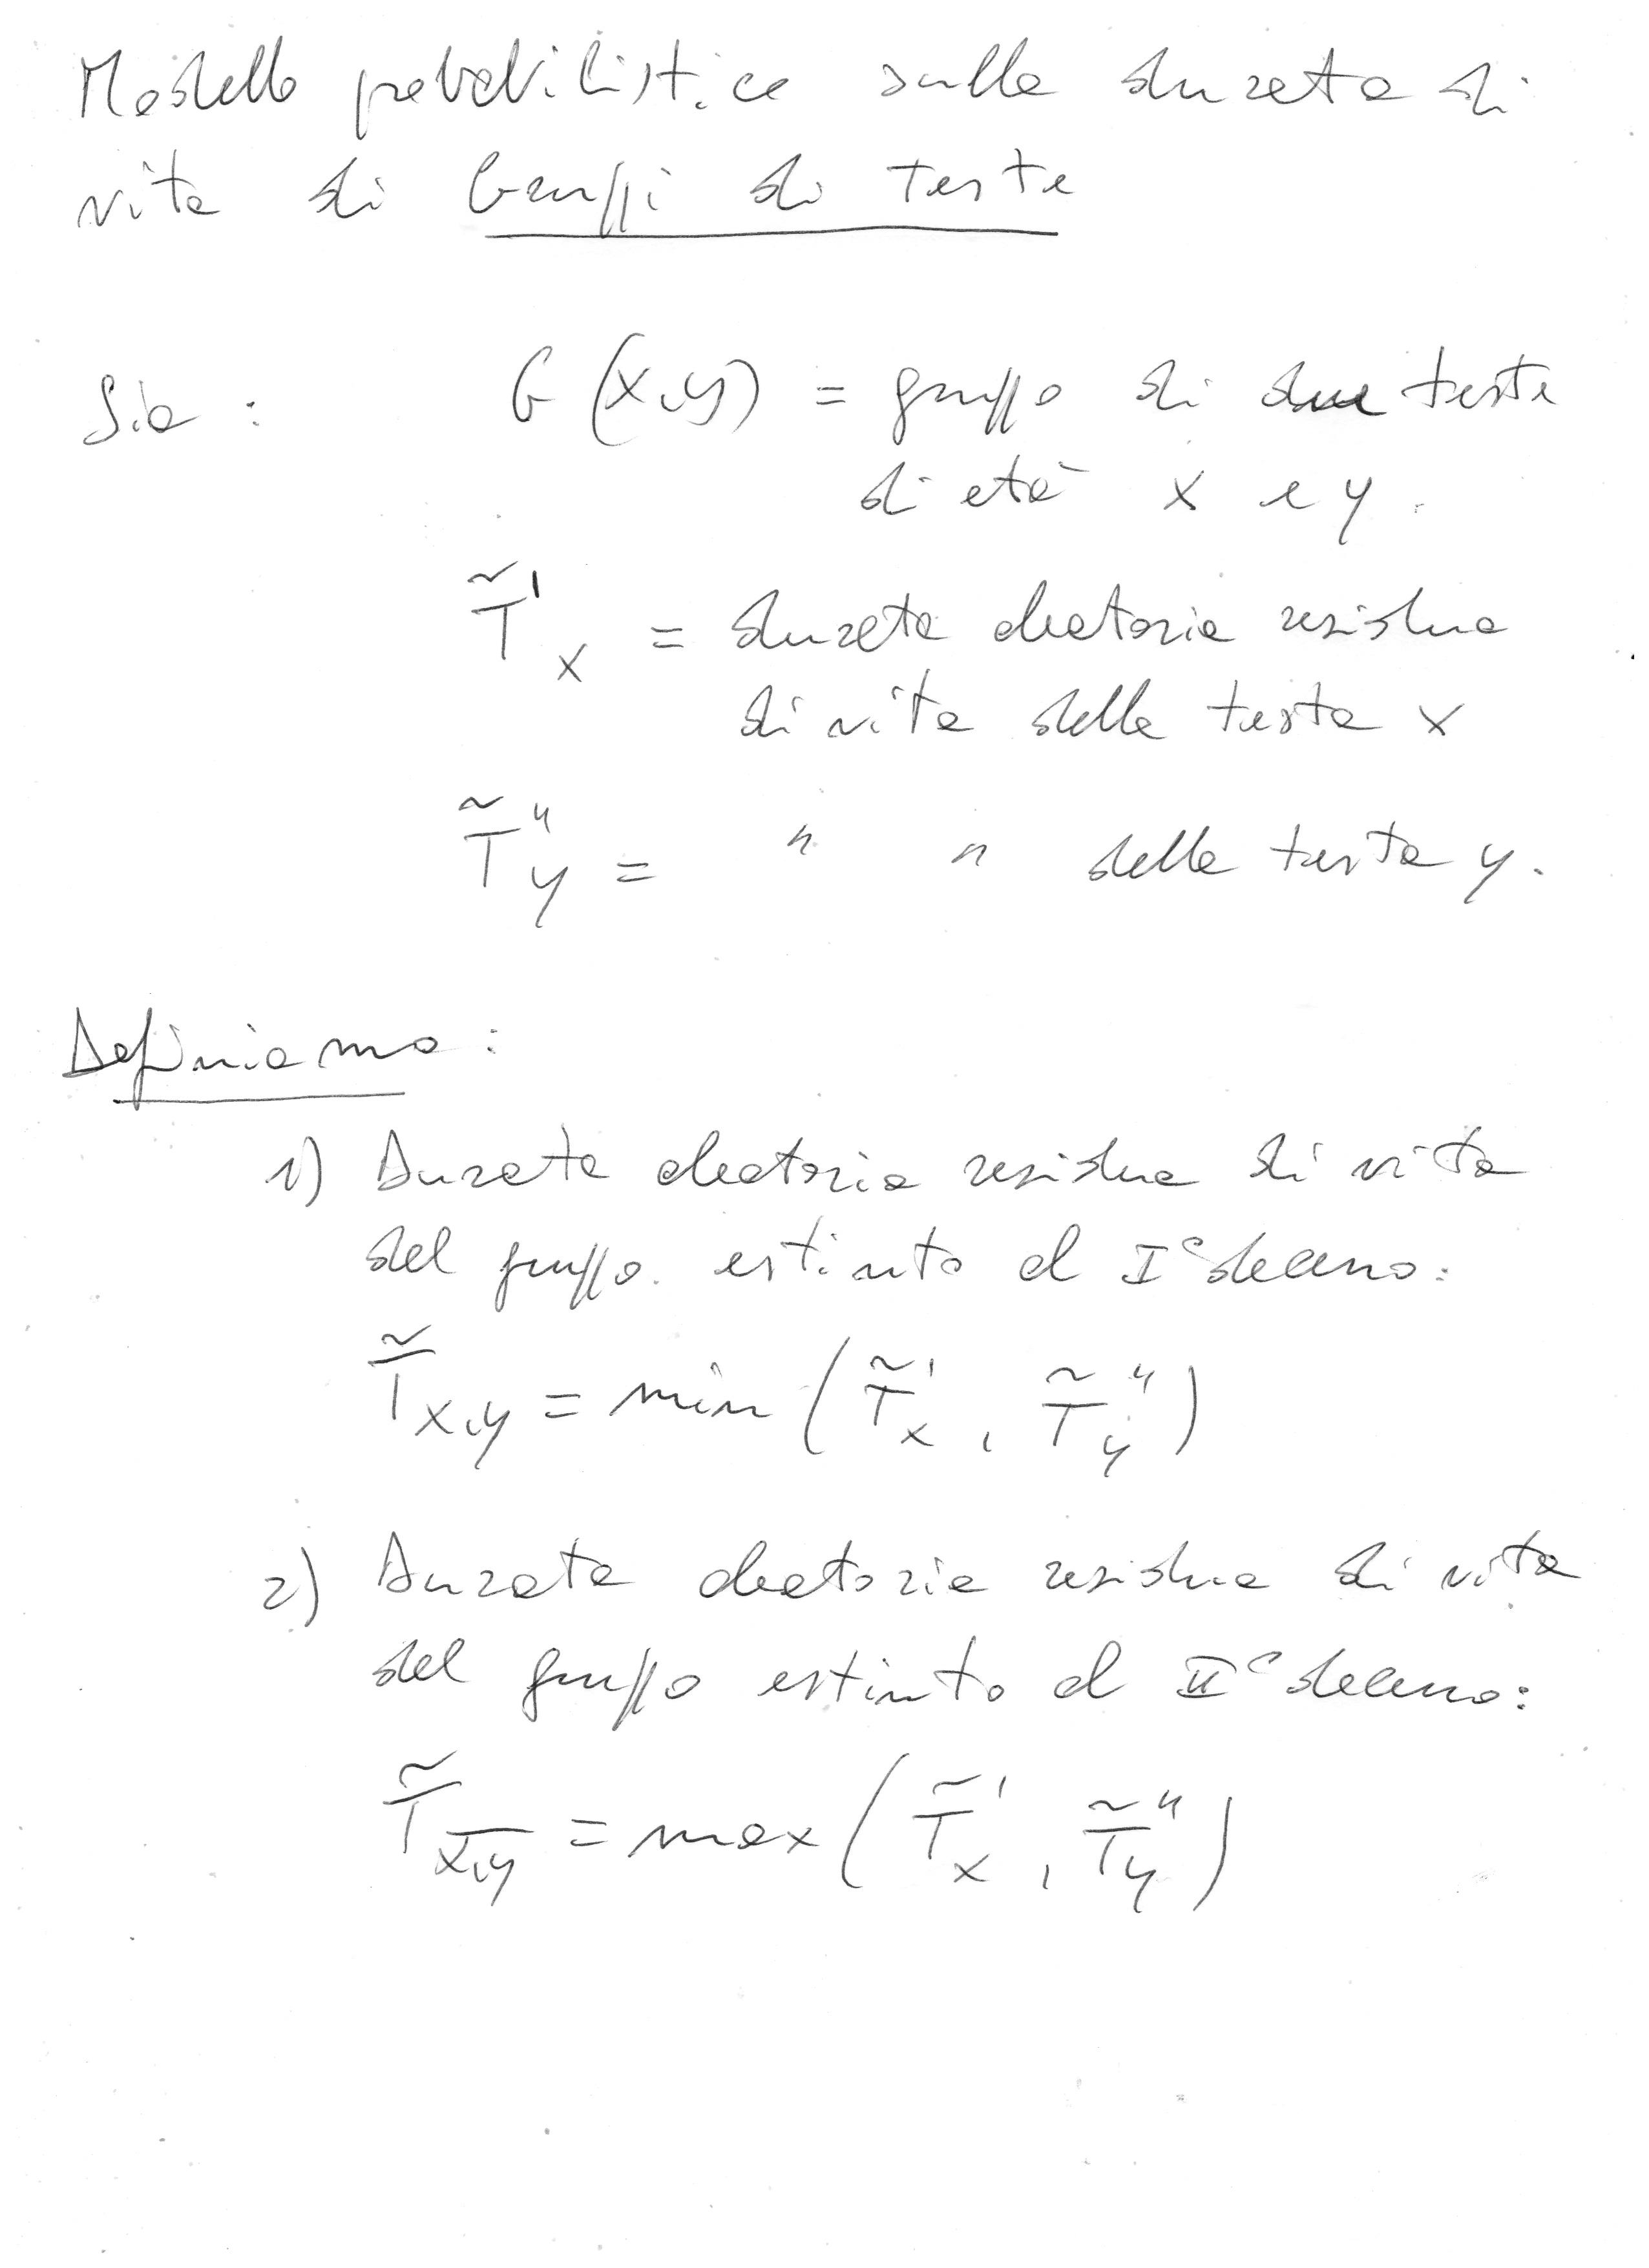 Modello probabilistico sulla durata di
vita di Gruppi di teste
Sia : G (x,y) = gruppo di due teste
di età x e y.
T̃'x = durata aleatoria residua
di vita della testa x
T̃"y = " " della testa y.
Definiamo :
1) Durata aleatoria residua di vita
del gruppo estinto al I° decesso:
T̃x,y = min ( T̃'x , T̃"y )
2) Durata aleatoria residua di vita
del gruppo estinto al II° decesso:
T̃x̅,̅y̅ = max ( T̃'x , T̃"y )